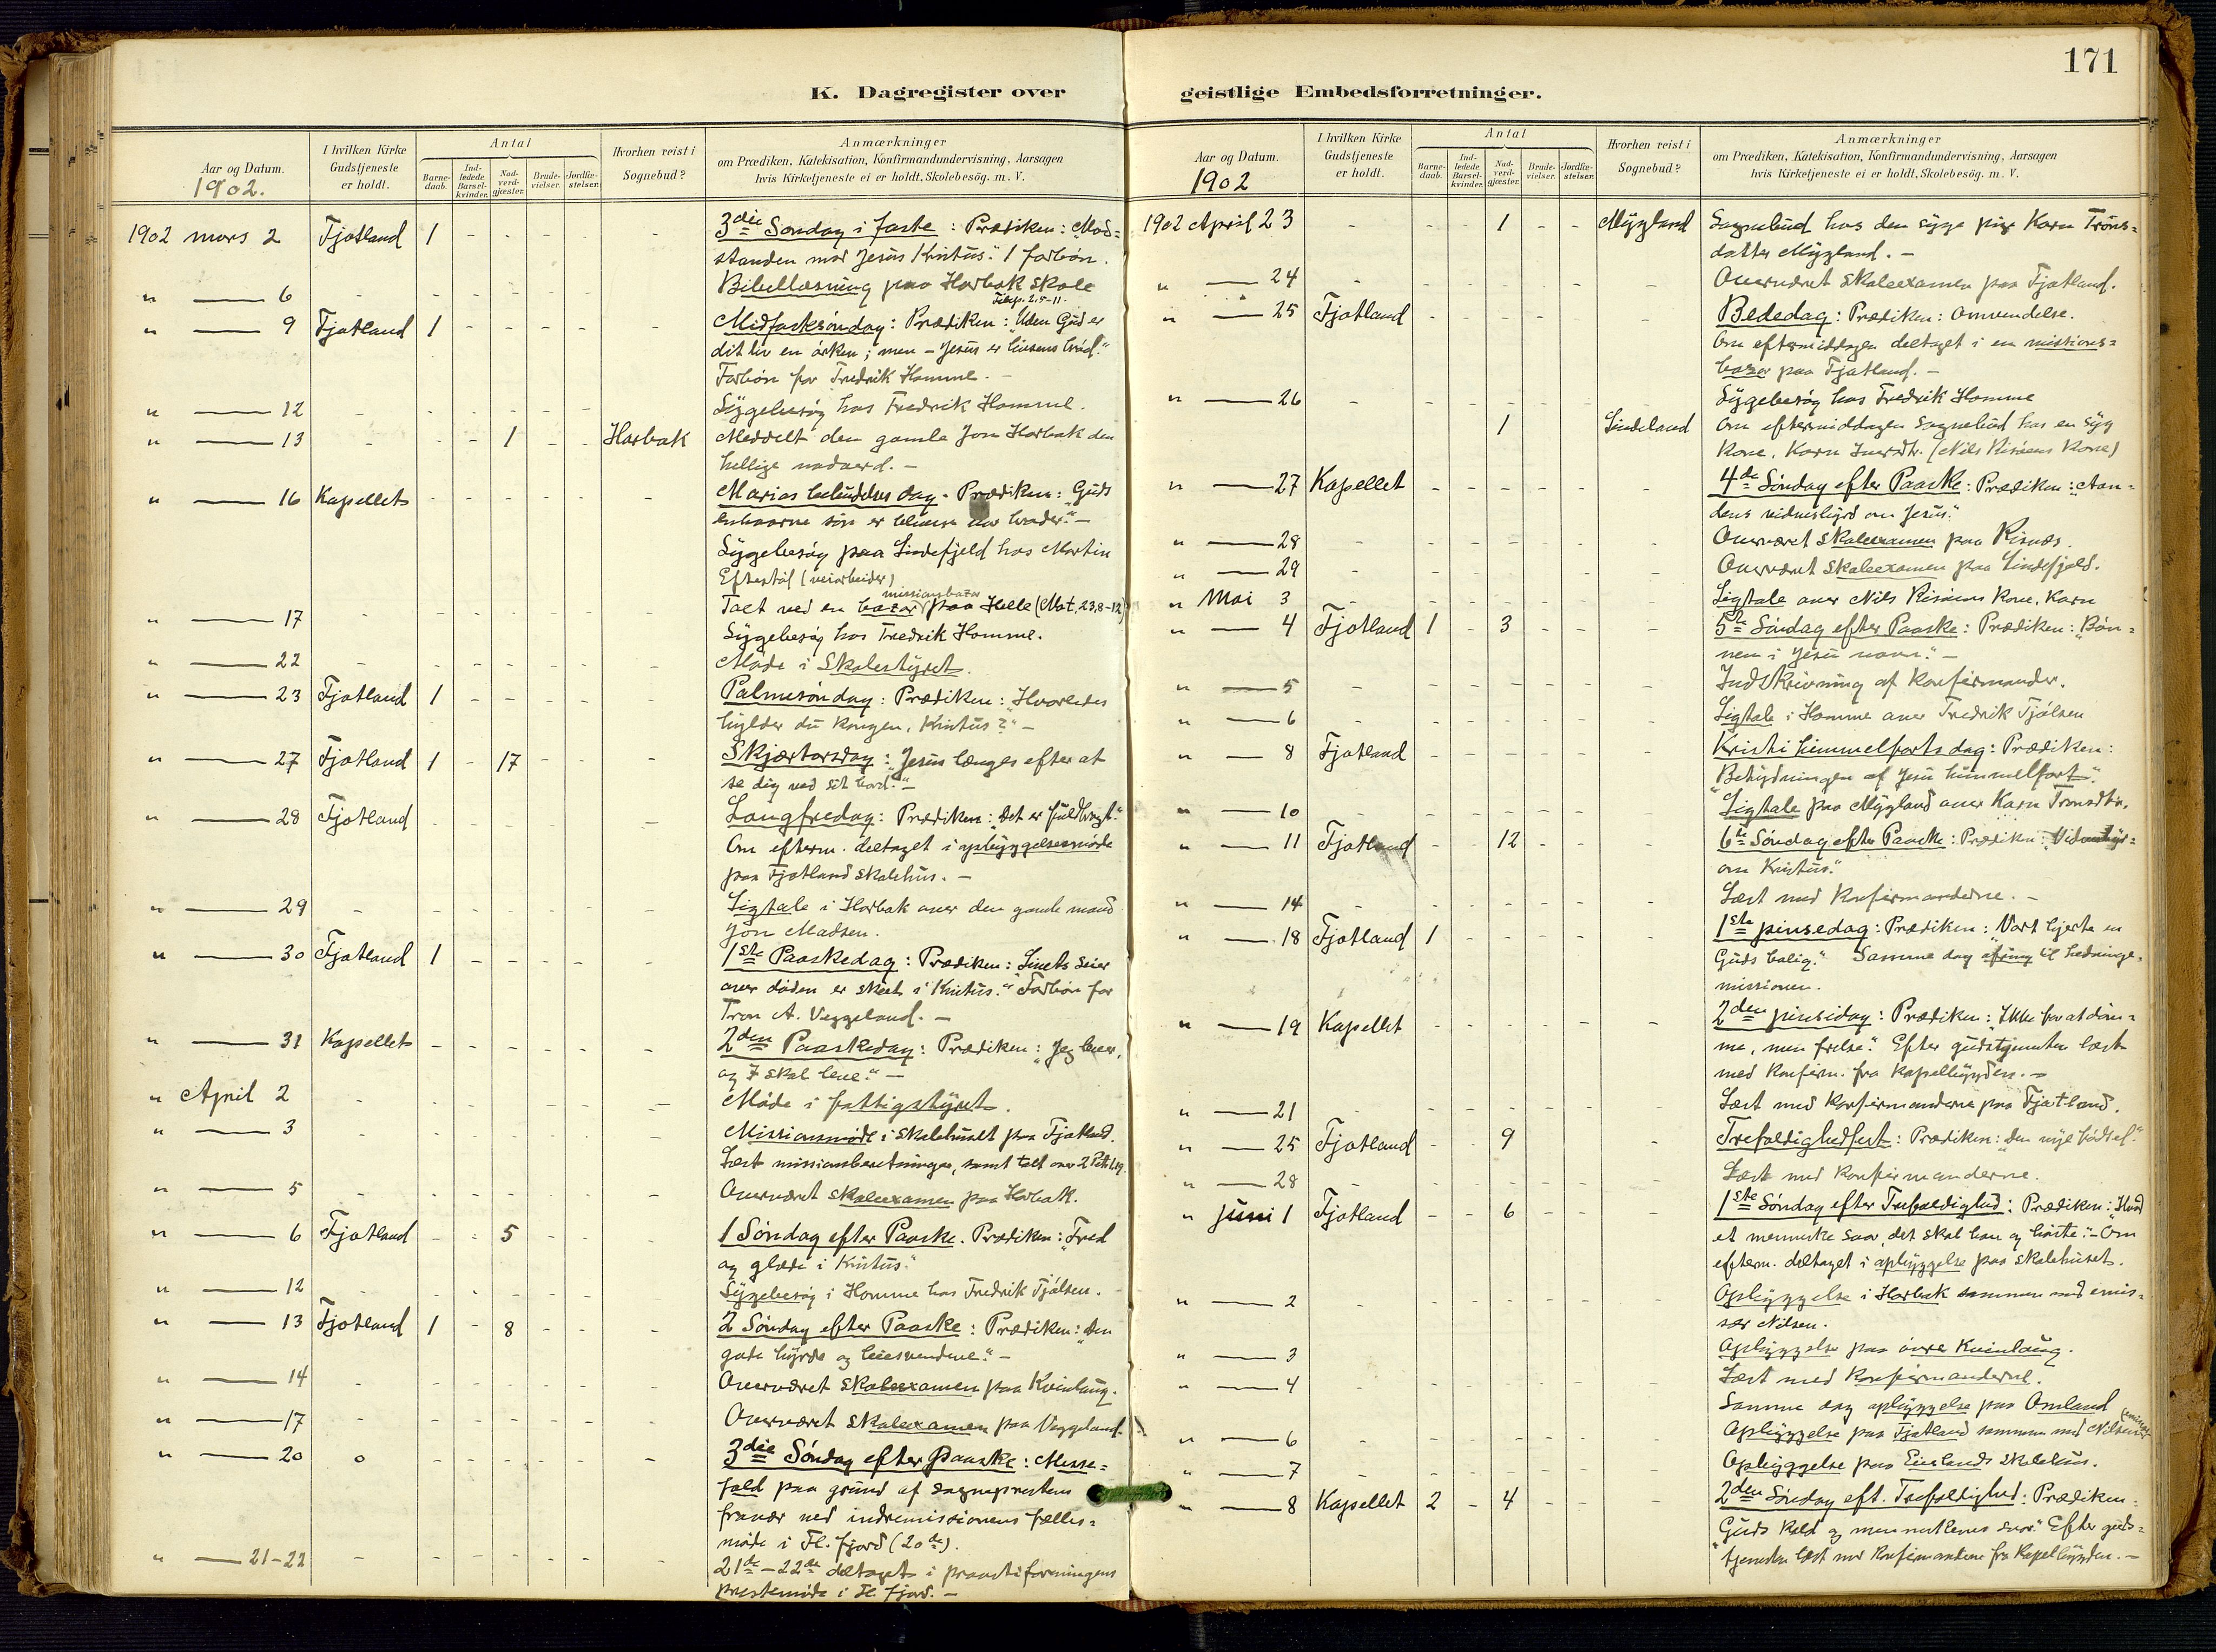 171
K. Dagregister over geistlige Embedsforretninger.
Aar og Datum. 1902.
I hvilken Kirke Gudstjeneste er holdt.
Antal
Barnedaab.
Indledede Barselkvinder.
Nadverdgjæster.
Brudevielser.
Jordfæstelser.
Hvorhen reist i Sognebud?
Anmærkninger
om Prædiken, Katekisation, Konfirmandundervisning, Aarsagen
hvis Kirketjeneste ei er holdt, Skolebesög. m. V.
1902 mars 2 Fjotland 1 - - - - - 3die Søndag i faste: Prædiken: "Mod=
standen mod Jesus Kristus." 1 forbøn.
" — 6 - - - - - - Bibellæsning paa Horbak skole
Filip. 2,5-11.
" — 9 Fjotland 1 - - - - - Midfastesøndag: Prædiken: "Uden Gud er
dit liv en ørken; men - Jesus er livsens brød."
Forbøn for Fredrik Homme. -
" — 12 - - - - - - Sygebesøg hos Fredrik Homme.
" — 13 - - - 1 - - Horbak Meddelt den gamle Jon Horbak den
hellige nadverd. -
" — 16 Kapellet - - - - - - Marias bebudelses dag. Prædiken: Guds
enbaarne søn er bleven vor broder." -
Sygebesøg paa Lindefjeld hos Martin
Eftestøl (veiarbeider)
missionsbazar
" — 17 - - - - - - Talt ved en bazar paa Helle (Mat. 23,8-12)
Sygebesøg hos Fredrik Homme.
" — 22 - - - - - - Møde i Skolestyret.
" — 23 Fjotland 1 - - - - - Palmesøndag: Prædiken: "Hvorledes
hylder du kongen, Kristus?" -
" — 27 Fjotland 1 - 17 - - - Skjærtorsdag: "Jesus længes efter at
se dig ved sit bord." -
" — 28 Fjotland - - - - - - Langfredag: Prædiken: "Det er fuldbragt."
Om efterm. deltaget i opbyggelsesmøde
paa Fjotland skolehus. -
" — 29 - - - - - - Ligtale i Horbak over den gamle mand
Jon Madsen.
" — 30 Fjotland 1 - - - - - 1ste Paaskedag: Prædiken: Livets seier
over døden er skeet i Kristus." Forbøn for
Tron A. Veggeland. -
" — 31 Kapellet - - - - - - 2den Paaskedag: Prædiken: "Jeg lever,
og I skal leve." -
" April 2 - - - - - - Møde i fattigstyret.
" — 3 - - - - - - Missionsmøde i skolehuset paa Fjotland.
Læst missionsberetninger, samt talt over 2 Petr. 1,19.
" — 5 - - - - - - Overværet skoleexamen paa Horbak.
" — 6 Fjotland - - 5 - - - 1 Søndag efter Paaske. Prædiken: "Fred
og glæde i Kristus."
" — 12 - - - - - - Sygebesøg i Homme hos Fredrik Tjølsen.
" — 13 Fjotland 1 - 8 - - - 2 Søndag efter Paaske: Prædiken: "Den
gode hyrde og leiesvendene." -
" — 14 - - - - - - Overværet skoleexamen paa Kvinlaug.
" — 17 - - - - - - Overværet skoleexamen paa Veggeland.
" — 20 o - - - - - - 3die Søndag efter Paaske: Messe=
fald paa grund af sogneprestens
fravær ved indremissionens fælles=
møde i Fl. fjord (20de).
" — 21-22 - - - - - - 21de-22de deltaget i provstiforeningens
prestemøde i Fl. fjord. -
Aar og Datum. 1902
I hvilken Kirke Gudstjeneste er holdt.
Antal
Barnedaab.
Indledede Barselkvinder.
Nadverdgjæster.
Brudevielser.
Jordfæstelser.
Hvorhen reist i Sognebud?
Anmærkninger
om Prædiken, Katekisation, Konfirmandundervisning, Aarsagen
hvis Kirketjeneste ei er holdt, Skolebesög. m. V.
1902 April 23 - - - 1 - - Mygland Sognebud hos den syge pige Karn Trons=
datter Mygland. -
" — 24 - - - - - - Overværet skoleexamen paa Fjotland.
" — 25 Fjotland - - - - - - Bededag: Prædiken: Omvendelse.
Om eftermiddagen deltaget i en missions=
bazar paa Fjotland. -
" — 26 - - - - - - Sygebesøg hos Fredrik Homme
1 - - Lindeland Om eftermiddagen Sognebud hos en syg
kone, Karn Iversdtr. (Nils Risøens kone)
" — 27 Kapellet - - - - - - 4de Søndag efter Paaske: Prædiken: "Aan=
dens vidnesbyrd om Jesus."
" — 28 - - - - - - Overværet skoleexamen paa Risnes.
" — 29 - - - - - - Overværet skoleexamen paa Lindefjeld.
" Mai 3 - - - - - - Ligtale over Nils Risøens kone, Karn
" — 4 Fjotland 1 - 3 - - - 5te Søndag efter Paaske: Prædiken: "Bøn=
nen i Jesu navn." -
" — 5 - - - - - - Indskrivning af konfirmander.
" — 6 - - - - - - Ligtale i Homme over Fredrik Tjølsen
" — 8 Fjotland - - - - - - Kristi himmelfarts dag: Prædiken:
"Betydningen af Jesu himmelfart".
" — 10 - - - - - - Ligtale paa Mygland over Karn Tronsdtr.
" — 11 Fjotland - - 12 - - - 6te Søndag efter Paaske: Prædiken:
om Kristus."
" — 14 - - - - - - Læst med konfirmanderne. -
" — 18 Fjotland 1 - - - - - 1ste pinsedag: Prædiken: "Vort hjerte en
Guds bolig." Samme dag ofring til hedninge=
missionen.
" — 19 Kapellet - - - - - - 2den pinsedag: Prædiken: "Ikke for at døm=
me, men frelse." Efter gudstjenesten læst
med konfirm. fra kapelbygden. -
" — 21 - - - - - - Læst med konfirmanderne paa Fjotland.
" — 25 Fjotland - - 9 - - - Trefoldighedfest: Prædiken: "Den nye fødsel".
" — 28 - - - - - - Læst med konfirmanderne.
" juni 1 Fjotland - - 6 - - - 1ste Søndag efter Trefoldighed: Prædiken: "Hvad
et menneske saar, det skal han og høste". - Om
efterm. deltaget i opbyggelse paa skolehuset.
" — 2 - - - - - - Opbyggelse i Horbak sammen med emis=
sær Nilsen.
" — 3 - - - - - - Opbyggelse paa øvre Kvinlaug.
" — 4 - - - - - - Læst med konfirmanderne.
Samme dag opbyggelse paa Omland
" — 6 - - - - - - Opbyggelse paa Fjotland sammen med Nilsen
" — 7 - - - - - - Opbyggelse paa Eielands skolehus.
" — 8 Kapellet 2 - 4 - - - 2den Søndag eft. Trefoldighed: Prædiken:
"Guds kald og menneskenes svar." Efter guds=
tjenesten læst med konfirmanderne fra kapelbygden. -